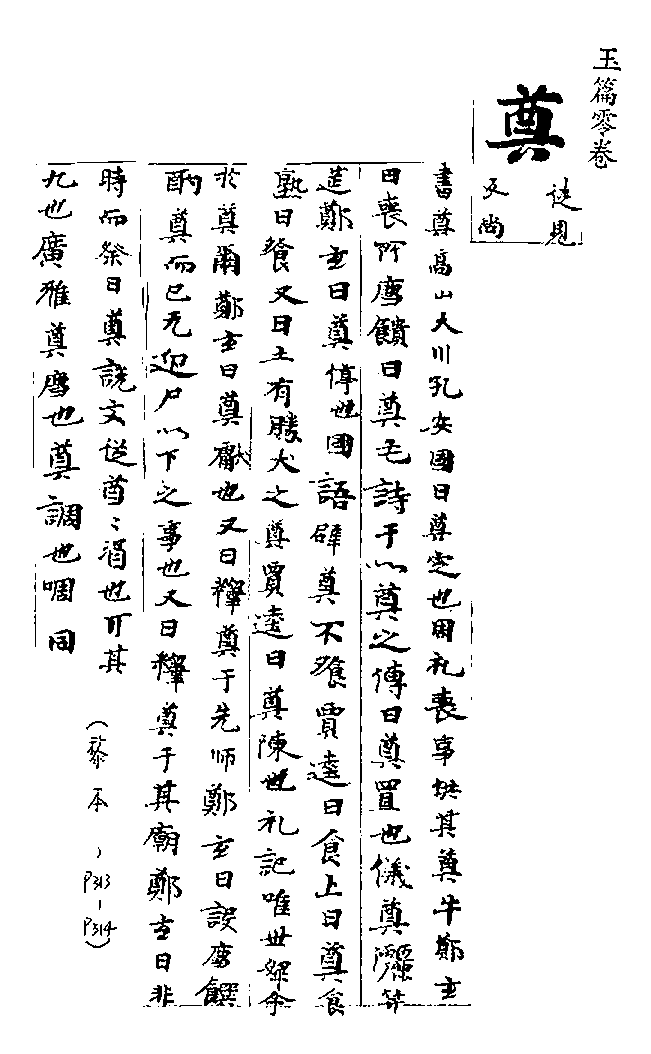 玉篇零卷
奠
徒見
反尚
書奠高山大川孔安國曰奠定也周礼喪事共其奠牛鄭玄
曰喪所薦饋曰奠毛詩于以奠之傳曰奠置也儀奠
鄭玄曰奠停也國語辟奠不飧賈逵曰食上曰奠食
熟曰飧又曰士有勝犬之奠賈逵曰奠陳也礼記唯世婦命
於奠爾鄭玄曰奠獻也又曰釋奠于先師鄭玄曰設薦饌
酌奠而已无迎尸以下之事也又曰釋奠于其廟鄭玄曰非
時而祭曰奠說文從酋〻酒也丌其
九也廣雅奠薦也奠調也啁同
(黎本,P313-P314)